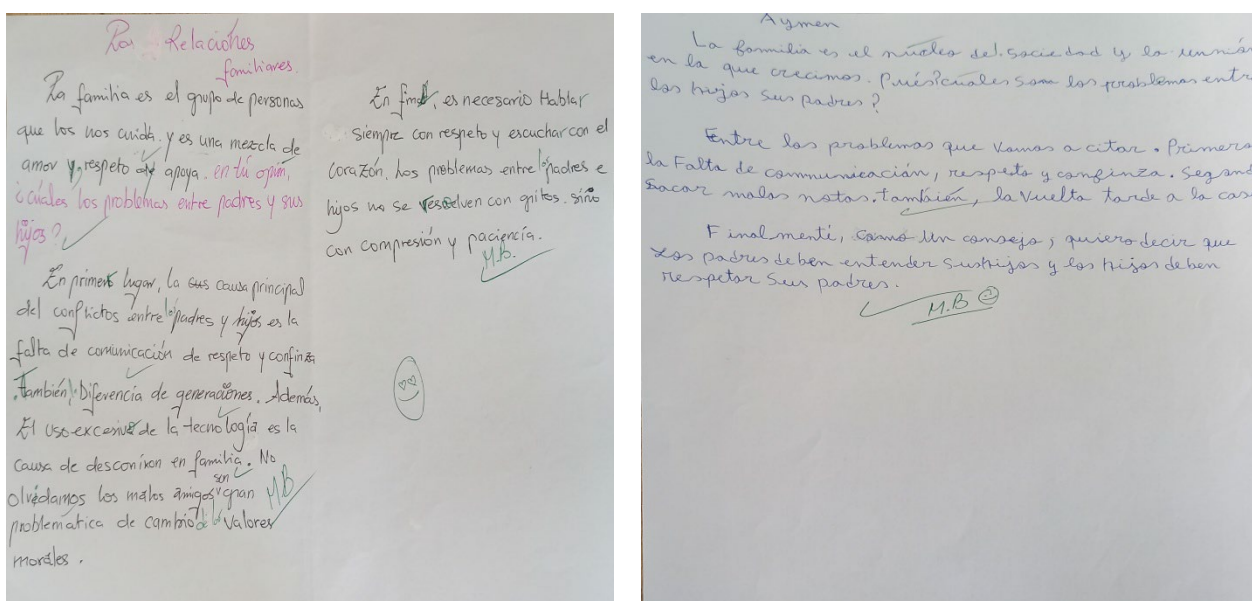 Las Relaciones
familiares.
La familia es el grupo de personas
que los nos cuida y es una mezcla de
amor y respeto y apoya. en tú opión,
¿cuáles los problemas entre padres y sus
hijos?
En primer lugar, la sus causa principal
del conflictos entre los padres y hijos es la
falta de comunicación de respeto y confinza
. también, Diferencia de generaciones. Además,
El uso excesive de la tecnología es la
causa de desconixon en familia. No
olvédamos los malos amigos son gran
problemática de cambio de los valores
morales.
M.B
En final, es necesario Hablar
siempre con respeto y escuchar con el
corazón. Los problemas entre los padres e
hijos no se resuelven con gritos. sino
con compresión y paciencía.
M.B.
Aymen
La familia es el núcleo del sociedad y la unnión
en la que crecimos. Pués ¿cuales som los problemas entr
los hijos sus padres?
Entre los problemas que vamos a citar. Primero
la Falta de communicación, respeto y confinza. Segund
Sacar malas notas. También, la vuelta tarde a la cas
Finalmenti, como un consejo, quiero decir que
Los padres deben entender sus hijos y los hijos deben
respetar sus padres.
M.B